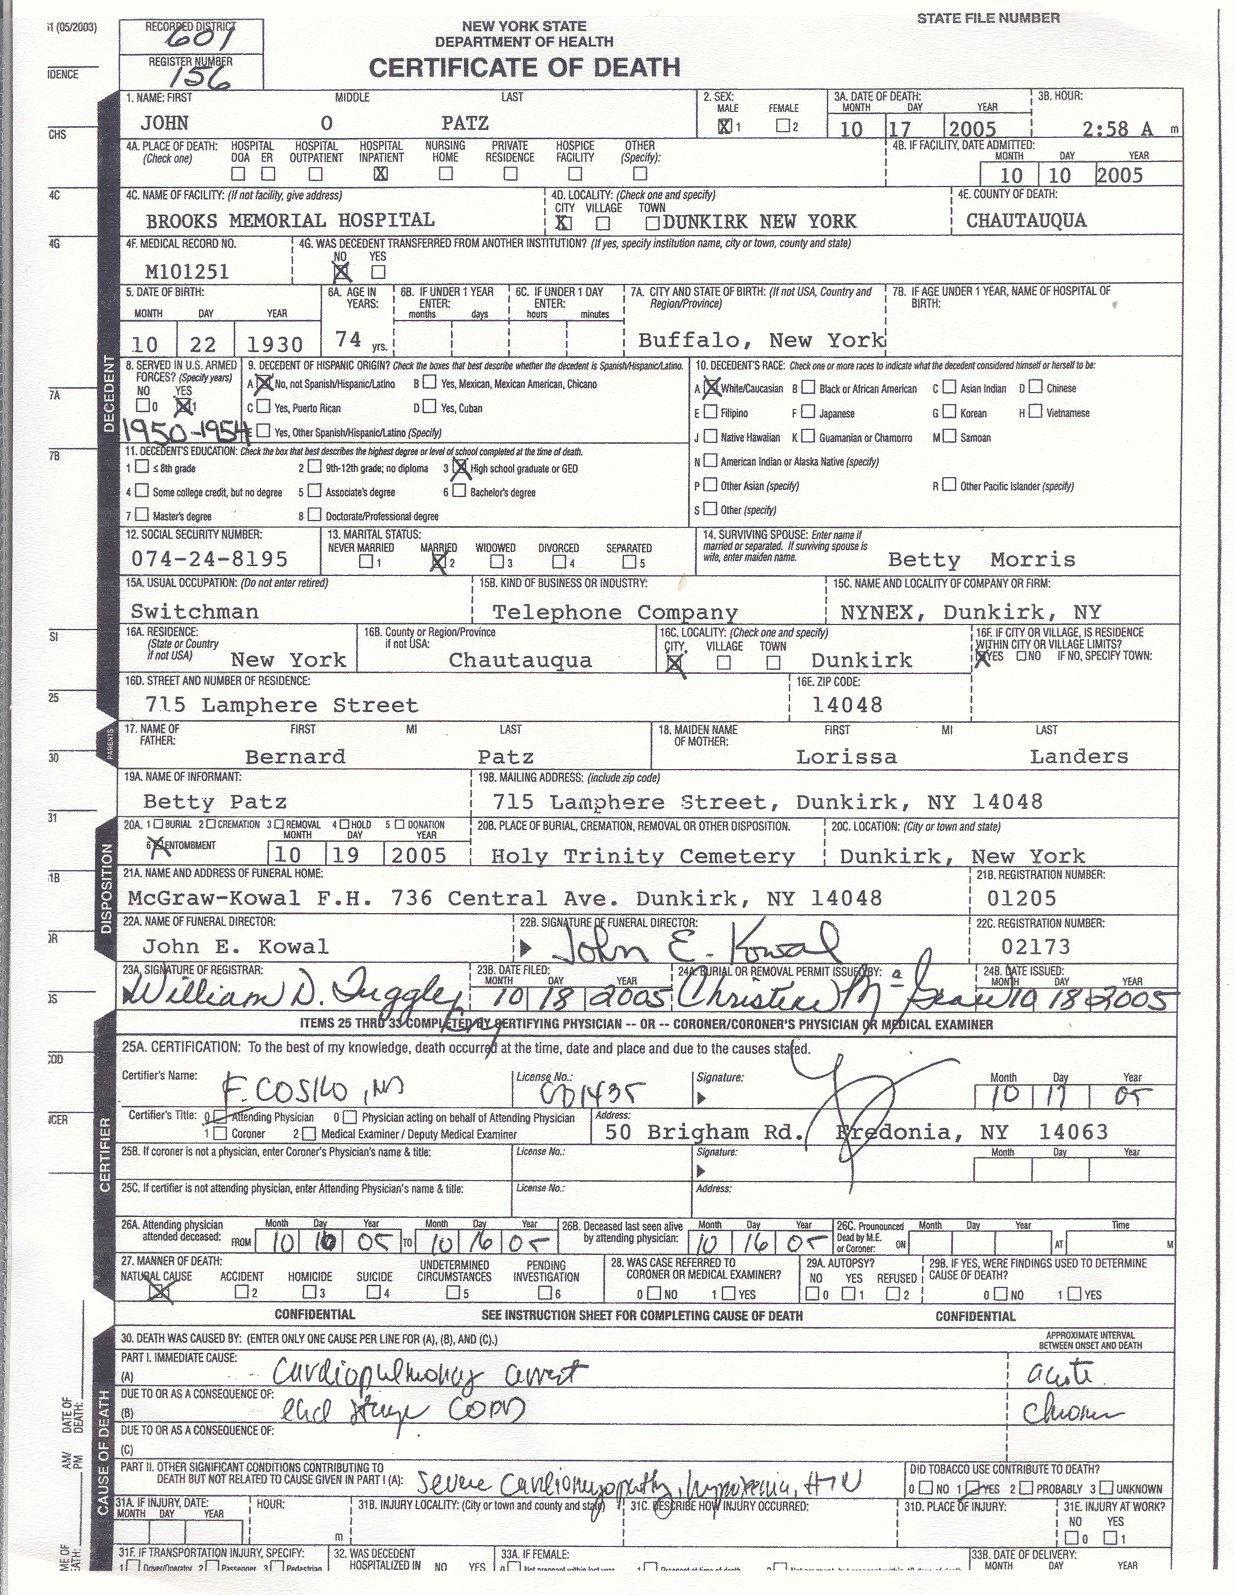 STATE FILE NUMBER
(05/2003)
RECORDED DISTRICT
601
REGISTER NUMBER
156
NEW YORK STATE
DEPARTMENT OF HEALTH
CERTIFICATE OF DEATH
IDENCE
1. NAME: FIRST MIDDLE LAST
JOHN O PATZ
2. SEX: MALE FEMALE
X 1 2
3A. DATE OF DEATH: MONTH DAY YEAR
10 17 2005
3B. HOUR:
2:58 A m
CHS
4A. PLACE OF DEATH: (Check one)
HOSPITAL DOA ER HOSPITAL OUTPATIENT HOSPITAL INPATIENT NURSING HOME PRIVATE RESIDENCE HOSPICE FACILITY OTHER (Specify):
X
4B. IF FACILITY, DATE ADMITTED: MONTH DAY YEAR
10 10 2005
4C
4C. NAME OF FACILITY: (If not facility, give address)
BROOKS MEMORIAL HOSPITAL
4D. LOCALITY: (Check one and specify)
CITY VILLAGE TOWN
X DUNKIRK NEW YORK
4E. COUNTY OF DEATH:
CHAUTAUQUA
4G
4F. MEDICAL RECORD NO.
M101251
4G. WAS DECEDENT TRANSFERRED FROM ANOTHER INSTITUTION? (If yes, specify institution name, city or town, county and state)
NO YES
X
DECEDENT
5. DATE OF BIRTH:
MONTH DAY YEAR
10 22 1930
6A. AGE IN YEARS:
74 yrs.
6B. IF UNDER 1 YEAR ENTER:
months days
6C. IF UNDER 1 DAY ENTER:
hours minutes
7A. CITY AND STATE OF BIRTH: (If not USA, Country and Region/Province)
Buffalo, New York
7B. IF AGE UNDER 1 YEAR, NAME OF HOSPITAL OF BIRTH:
7A
8. SERVED IN U.S. ARMED FORCES? (Specify years)
NO YES
0 X 1
1950-1954
9. DECEDENT OF HISPANIC ORIGIN? Check the boxes that best describe whether the decedent is Spanish/Hispanic/Latino.
A X No, not Spanish/Hispanic/Latino B Yes, Mexican, Mexican American, Chicano
C Yes, Puerto Rican D Yes, Cuban
E Yes, Other Spanish/Hispanic/Latino (Specify)
10. DECEDENT'S RACE: Check one or more races to indicate what the decedent considered himself or herself to be:
A X White/Caucasian B Black or African American C Asian Indian D Chinese
E Filipino F Japanese G Korean H Vietnamese
J Native Hawaiian K Guamanian or Chamorro M Samoan
N American Indian or Alaska Native (specify)
P Other Asian (specify) R Other Pacific Islander (specify)
S Other (specify)
7B
11. DECEDENT'S EDUCATION: Check the box that best describes the highest degree or level of school completed at the time of death.
1 ≤ 8th grade 2 9th-12th grade; no diploma 3 X High school graduate or GED
4 Some college credit, but no degree 5 Associate's degree 6 Bachelor's degree
7 Master's degree 8 Doctorate/Professional degree
12. SOCIAL SECURITY NUMBER:
074-24-8195
13. MARITAL STATUS:
NEVER MARRIED MARRIED WIDOWED DIVORCED SEPARATED
1 X 2 3 4 5
14. SURVIVING SPOUSE: Enter name if married or separated. If surviving spouse is wife, enter maiden name.
Betty Morris
15A. USUAL OCCUPATION: (Do not enter retired)
Switchman
15B. KIND OF BUSINESS OR INDUSTRY:
Telephone Company
15C. NAME AND LOCALITY OF COMPANY OR FIRM:
NYNEX, Dunkirk, NY
SI
16A. RESIDENCE: (State or Country if not USA)
New York
16B. County or Region/Province if not USA:
Chautauqua
16C. LOCALITY: (Check one and specify)
CITY VILLAGE TOWN
X Dunkirk
16F. IF CITY OR VILLAGE, IS RESIDENCE WITHIN CITY OR VILLAGE LIMITS?
X YES NO IF NO, SPECIFY TOWN:
25
16D. STREET AND NUMBER OF RESIDENCE:
715 Lamphere Street
16E. ZIP CODE:
14048
PARENTS
30
17. NAME OF FATHER: FIRST MI LAST
Bernard Patz
18. MAIDEN NAME OF MOTHER: FIRST MI LAST
Lorissa Landers
19A. NAME OF INFORMANT:
Betty Patz
19B. MAILING ADDRESS: (include zip code)
715 Lamphere Street, Dunkirk, NY 14048
31
DISPOSITION
20A. 1 BURIAL 2 CREMATION 3 REMOVAL 4 HOLD 5 DONATION
6 X ENTOMBMENT
MONTH DAY YEAR
10 19 2005
20B. PLACE OF BURIAL, CREMATION, REMOVAL OR OTHER DISPOSITION.
Holy Trinity Cemetery
20C. LOCATION: (City or town and state)
Dunkirk, New York
1B
21A. NAME AND ADDRESS OF FUNERAL HOME:
McGraw-Kowal F.H. 736 Central Ave. Dunkirk, NY 14048
21B. REGISTRATION NUMBER:
01205
OR
22A. NAME OF FUNERAL DIRECTOR:
John E. Kowal
22B. SIGNATURE OF FUNERAL DIRECTOR:
John E. Kowal
22C. REGISTRATION NUMBER:
02173
OS
23A. SIGNATURE OF REGISTRAR:
William D. Tuggle
23B. DATE FILED: MONTH DAY YEAR
10 18 2005
24A. BURIAL OR REMOVAL PERMIT ISSUED BY:
Christine McGraw
24B. DATE ISSUED: MONTH DAY YEAR
10 18 2005
ITEMS 25 THRU 33 COMPLETED BY CERTIFYING PHYSICIAN -- OR -- CORONER/CORONER'S PHYSICIAN OR MEDICAL EXAMINER
COD
CERTIFIER
25A. CERTIFICATION: To the best of my knowledge, death occurred at the time, date and place and due to the causes stated.
Certifier's Name: F. COSICO, MD
License No.:
Signature:
Month Day Year
10 17 05
NCER
Certifier's Title: 0 Attending Physician 0 Physician acting on behalf of Attending Physician
1 Coroner 2 Medical Examiner / Deputy Medical Examiner
Address:
50 Brigham Rd. Fredonia, NY 14063
25B. If coroner is not a physician, enter Coroner's Physician's name & title:
License No.: Signature: Month Day Year
25C. If certifier is not attending physician, enter Attending Physician's name & title:
License No.: Address:
26A. Attending physician attended deceased:
Month Day Year Month Day Year
FROM 10 10 05 TO 10 16 05
26B. Deceased last seen alive by attending physician:
Month Day Year
10 16 05
26C. Pronounced Dead by M.E. or Coroner: ON
Month Day Year Time
AT M
27. MANNER OF DEATH:
NATURAL CAUSE ACCIDENT HOMICIDE SUICIDE UNDETERMINED CIRCUMSTANCES PENDING INVESTIGATION
X 2 3 4 5 6
28. WAS CASE REFERRED TO CORONER OR MEDICAL EXAMINER?
0 NO 1 YES
29A. AUTOPSY?
NO YES REFUSED
0 1 2
29B. IF YES, WERE FINDINGS USED TO DETERMINE CAUSE OF DEATH?
0 NO 1 YES
CONFIDENTIAL SEE INSTRUCTION SHEET FOR COMPLETING CAUSE OF DEATH CONFIDENTIAL
CAUSE OF DEATH
30. DEATH WAS CAUSED BY: (ENTER ONLY ONE CAUSE PER LINE FOR (A), (B), AND (C).)
APPROXIMATE INTERVAL BETWEEN ONSET AND DEATH
PART I. IMMEDIATE CAUSE:
(A) Cardiopulmonary arrest acute
DUE TO OR AS A CONSEQUENCE OF:
(B) end stage COPD chronic
DUE TO OR AS A CONSEQUENCE OF:
(C)
DATE OF DEATH:
AM/ PM
PART II. OTHER SIGNIFICANT CONDITIONS CONTRIBUTING TO DEATH BUT NOT RELATED TO CAUSE GIVEN IN PART I (A):
Severe Cardiomyopathy, hypoxemia, HTN
DID TOBACCO USE CONTRIBUTE TO DEATH?
0 NO 1 YES 2 PROBABLY 3 UNKNOWN
31A. IF INJURY, DATE: MONTH DAY YEAR
HOUR:
m
31B. INJURY LOCALITY: (City or town and county and state)
31C. DESCRIBE HOW INJURY OCCURRED:
31D. PLACE OF INJURY:
31E. INJURY AT WORK?
NO YES
0 1
31F. IF TRANSPORTATION INJURY, SPECIFY:
1 Driver/Operator 2 Passenger 3 Pedestrian
32. WAS DECEDENT HOSPITALIZED IN
NO YES
33A. IF FEMALE:
0 Not pregnant within last year 1 Pregnant at time of death
33B. DATE OF DELIVERY:
MONTH DAY YEAR